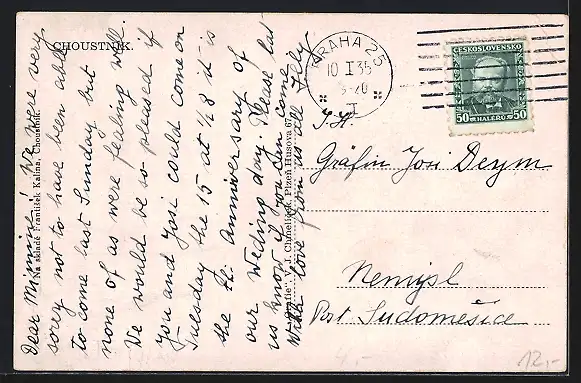 CHOUSTNÍK.
Dear Minnie! We were very
sorey not to have been able
to come last Sunday but
none of as were fealing well.
We would be so pleased if
you and Josi could come on
Tuesday the 15 at ½8 it is
the Anniversary of
our Weding day. Please let
us know if you can come
With love from us all
Na skladě František Kalina, Choustník.
V. J. Chmelíček, Plzeň Husova 67
PRAHA 25
10 I 35
ČESKOSLOVENSKO
50 HALÉŘŮ 50
Gräfin Josi Deym
Nemyšl
Post Sudoměřice
12,-